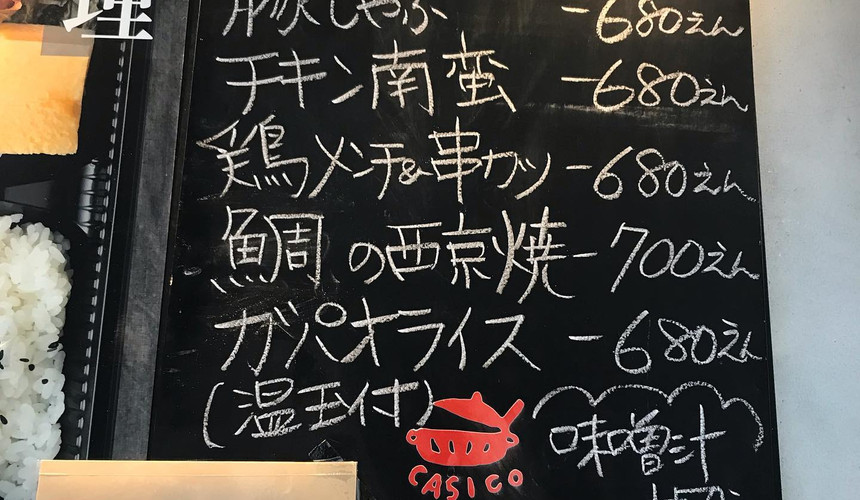 理
豚しゃぶ -680えん
チキン南蛮 -680えん
鶏メンチ&串カツ -680えん
鯛の西京焼 -700えん
ガパオライス -680えん
(温玉付)
CASICO
味噌汁